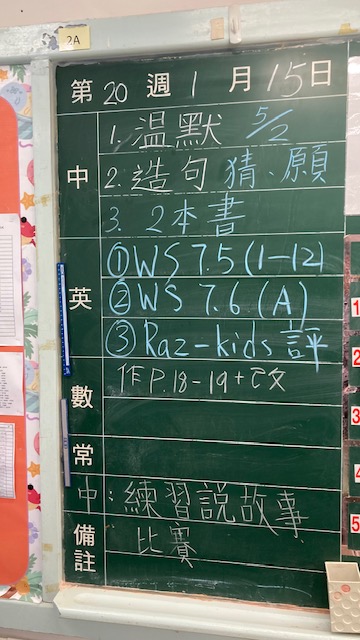 2A
第 20 週 1 月 15 日
中
1. 温默 5/2
2. 造句 猜、願
3. 2本書
英
① WS 7.5 (1-12)
② WS 7.6 (A)
③ Raz-kids 評
數
作 P.18-19 + 改
常
備註
中：練習說故事
比賽
1
2
3
4
5